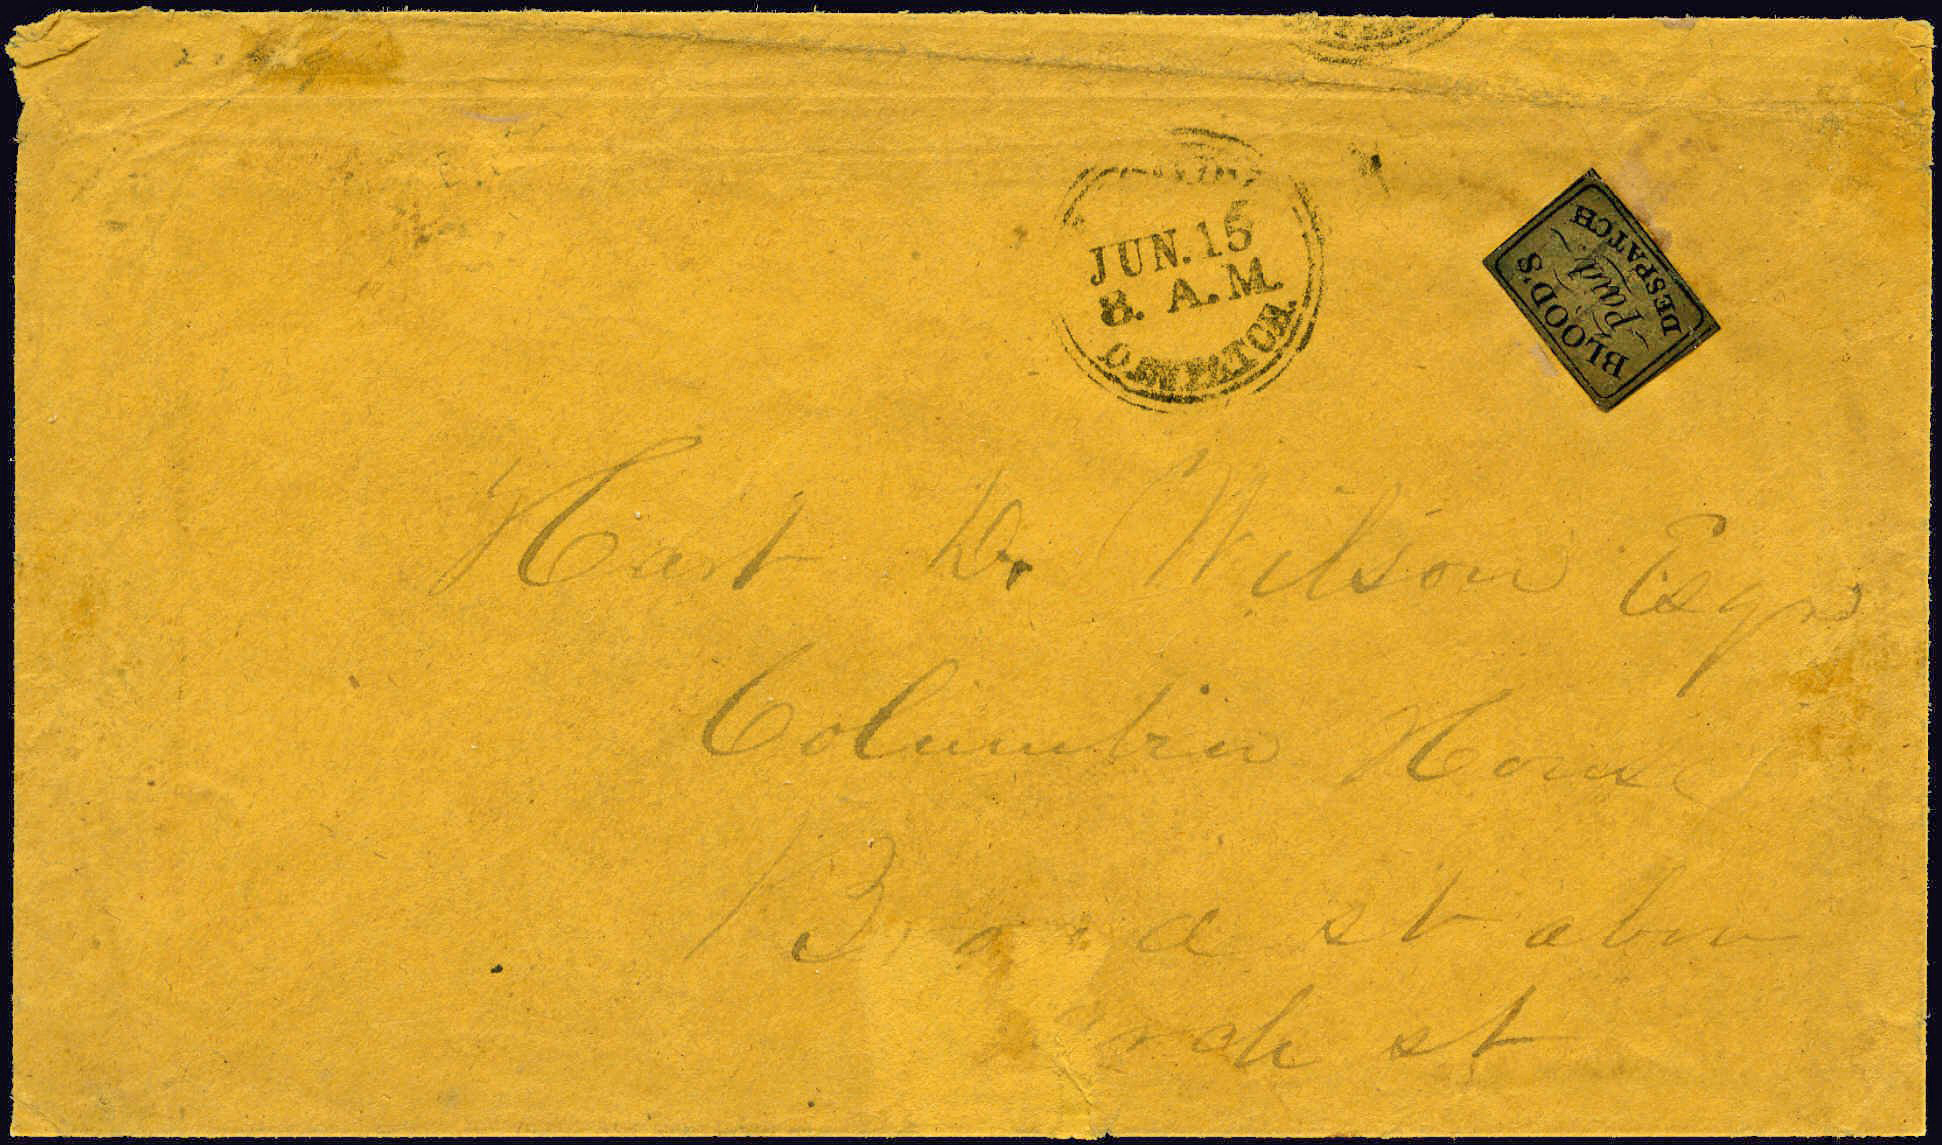 JUN. 15
8. A.M.
DESPATCH.
BLOOD'S
Paid.
DESPATCH
Hart D. Wilson Esqr
Columbia House
Broad st above
Arch st